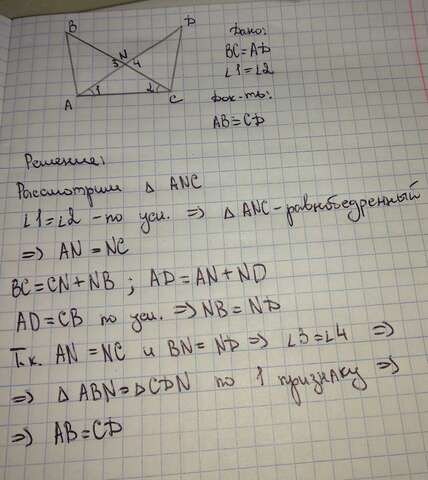 B
D
N
3 4
A 1 2 C
Дано:
BC=AD
∠1=∠2
Док-ть:
AB=CD
Решение:
Рассмотрим △ ANC
∠1=∠2 - по усл. => △ ANC - равнобедренный
=> AN = NC
BC = CN + NB ; AD = AN + ND
AD = CB по усл. => NB = ND
Т.к. AN = NC и BN = ND => ∠3=∠4 =>
=> △ ABN = △CDN по 1 признаку =>
=> AB = CD